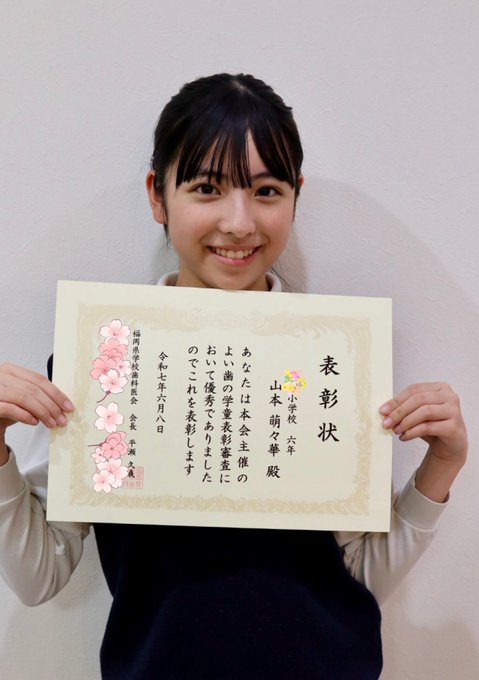 表彰状
小学校 六年
山本 萌々華 殿
あなたは本会主催の
よい歯の学童表彰審査に
おいて優秀でありました
のでこれを表彰します
令和七年六月八日
福岡県学校歯科医会 会長 平瀬 久義